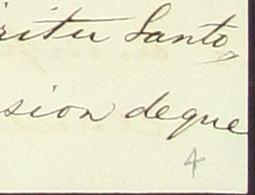 ritu Santo,
sion deque
4